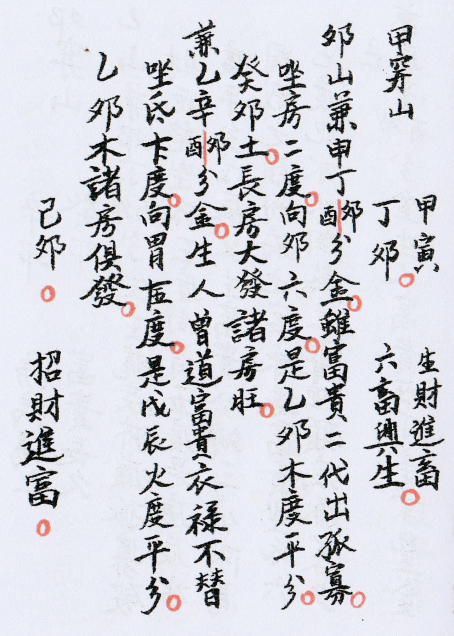 甲穿山
甲寅 生財進畜
丁卯 六畜興生
卯山兼甲丁卯酉分金雖富貴二代出孤寡
坐房二度向卯六度是乙卯木度平分
癸卯土長房大發諸房旺
兼乙辛卯酉分金生人曾道富貴衣祿不替
坐氐度向胃度是戊辰火度平分
乙卯木諸房俱發
己卯 招財進富